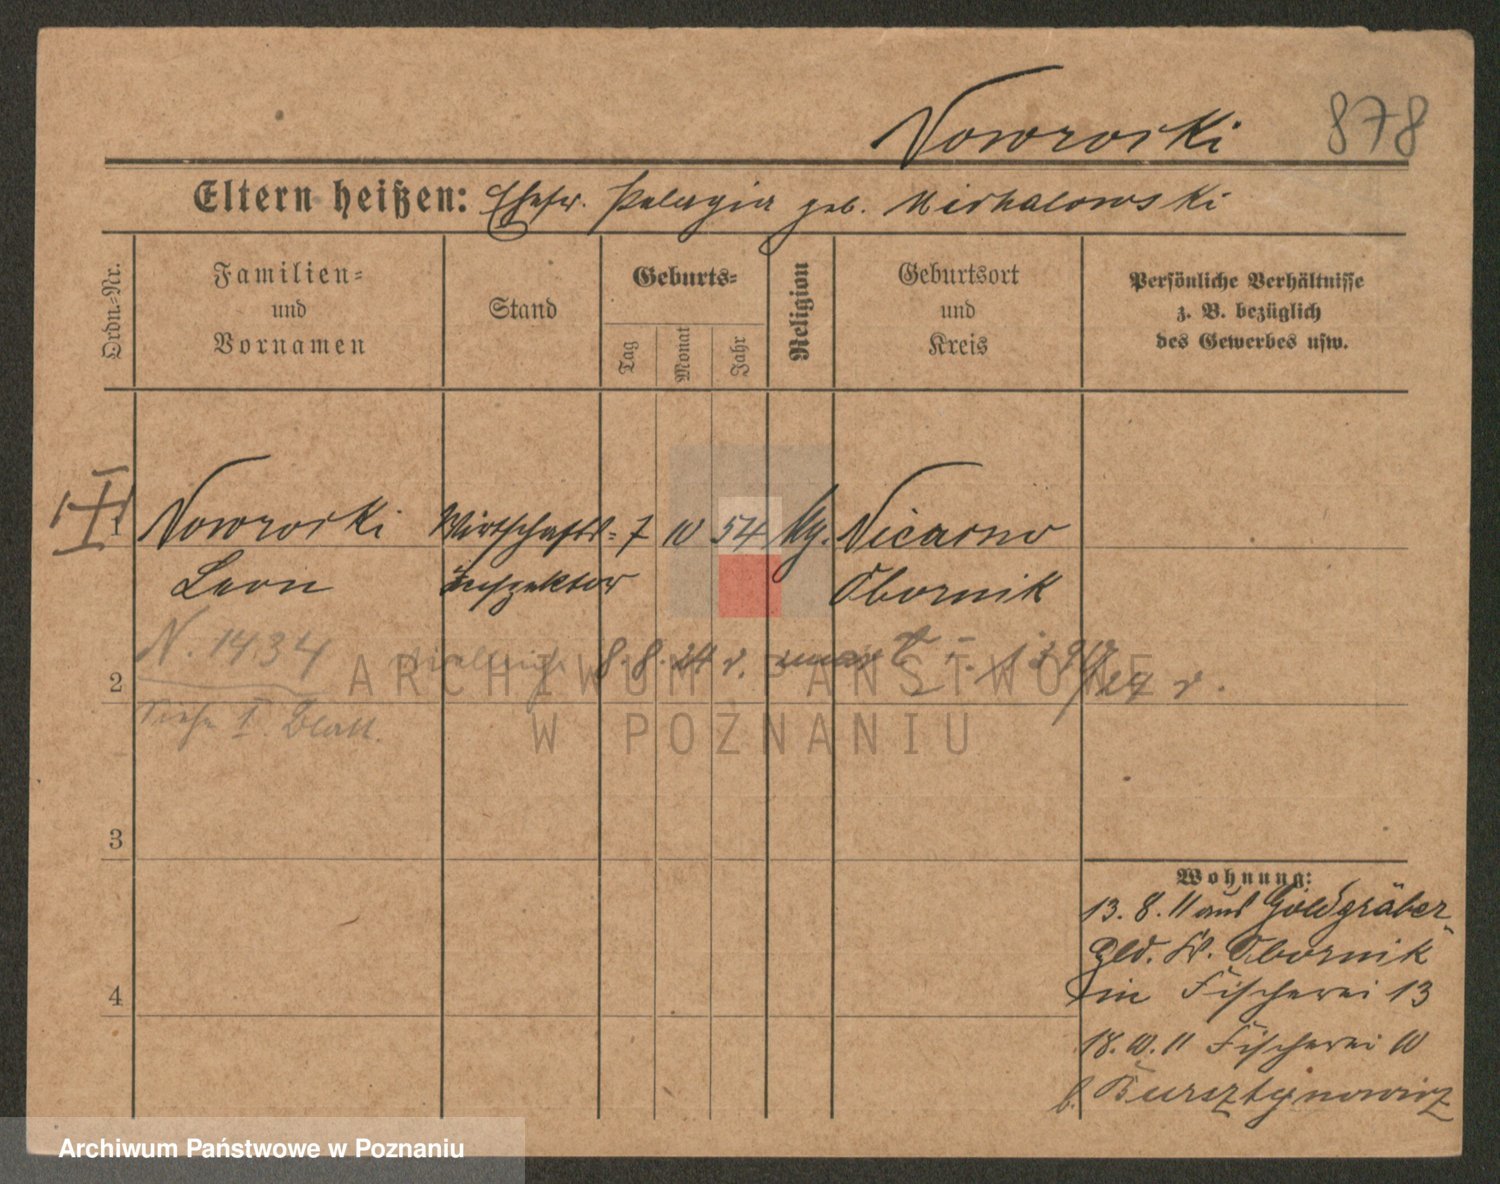 Noworski 878
Eltern heißen: Ehefr. Pelagia geb. Michalowski
Ordn.-Nr.
Familien- und Vornamen
Stand
Geburts-
Tag
Monat
Jahr
Religion
Geburtsort und Kreis
Persönliche Verhältnisse
z. B. bezüglich
des Gewerbes usw.
1 Noworski Wirtschafts- 7 10 54 Nicarno
Leon Inspektor Obornik
N. 1434 8. 8. 24 r.
2
Siehe I. Blatt.
3
4
Wohnung:
13. 8. 11 aus Goldgräber-
Kr. Obornik
in Fischerei 13
18. 10. 11 Fischerei 10
b. Bursztynowicz
ARCHIWUM PAŃSTWOWE
W POZNANIU
Archiwum Państwowe w Poznaniu